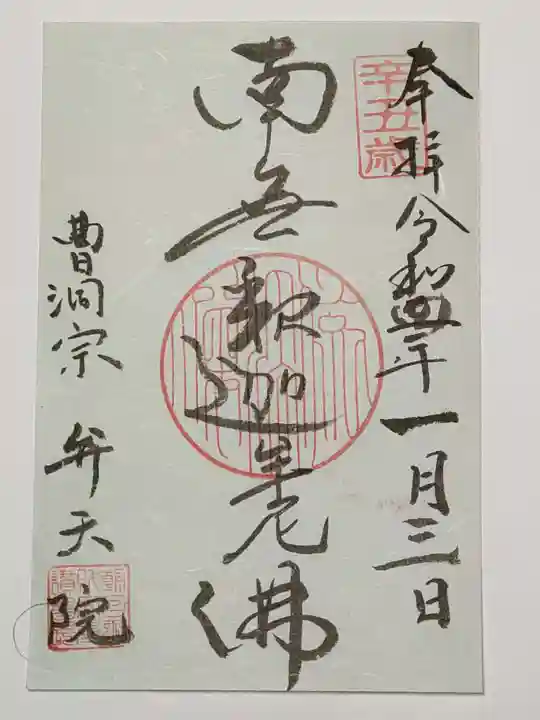 奉拝 令和三年一月三日
辛丑歳
南無釈迦牟尼佛
曹洞宗 弁天院